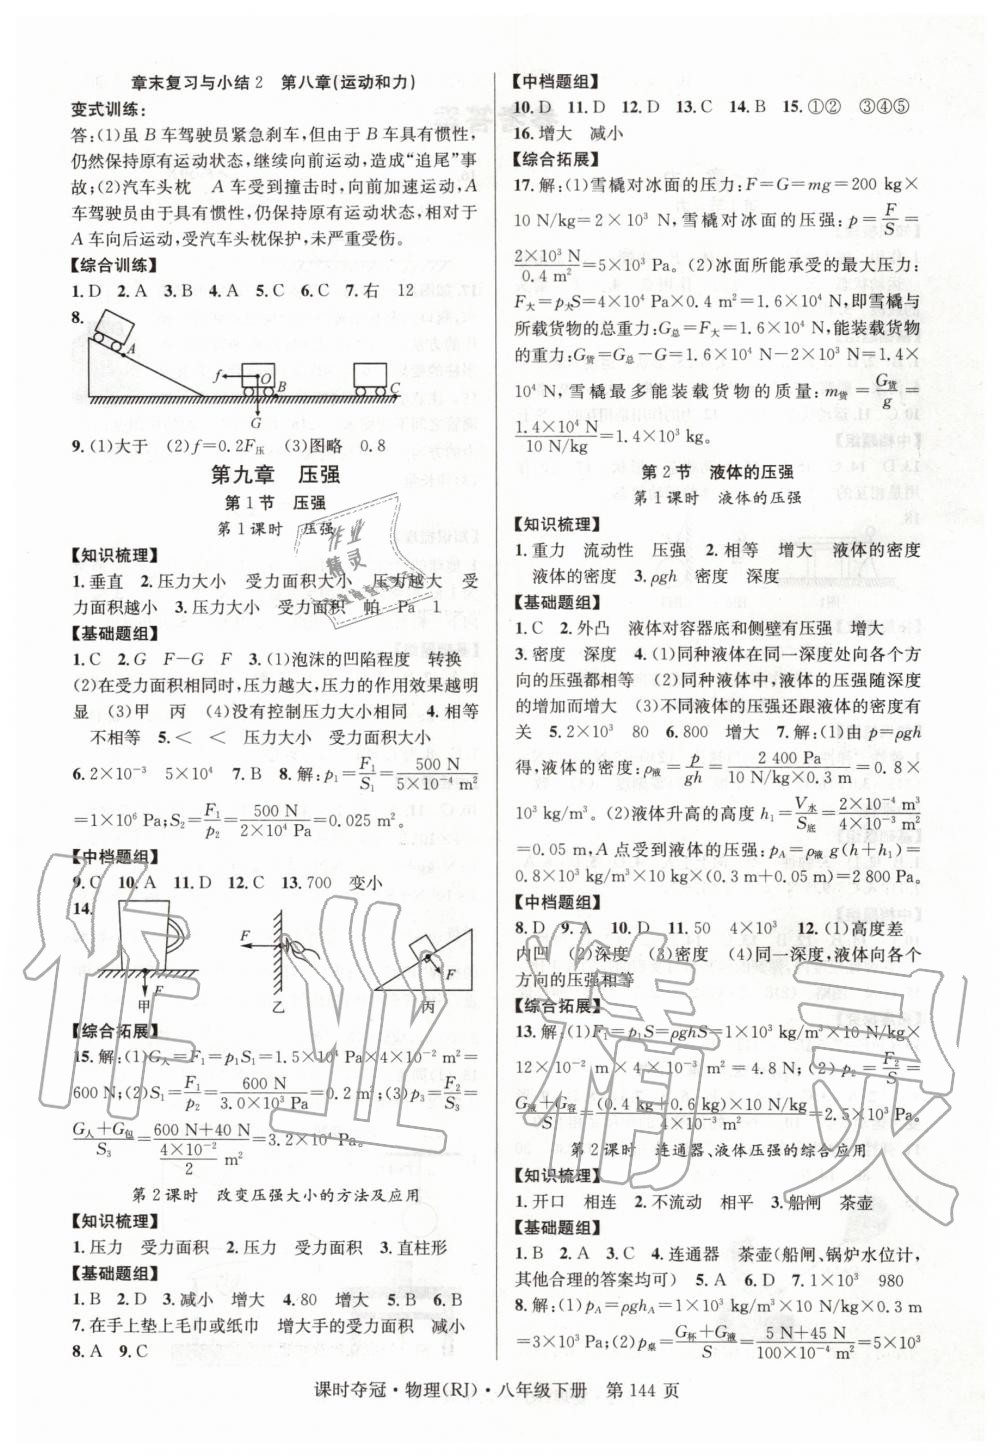 章末复习与小结2　第八章(运动和力)
变式训练:
答:(1)虽 B 车驾驶员紧急刹车,但由于 B 车具有惯性,
仍然保持原有运动状态,继续向前运动,造成“追尾”事
故;(2)汽车头枕　A 车受到撞击时,向前加速运动,A
车驾驶员由于具有惯性,仍保持原有运动状态,相对于
A 车向后运动,受汽车头枕保护,未严重受伤。
【综合训练】
1. D　2. A　3. B　4. A　5. C　6. C　7. 右　12
8.
A　f　O　B　C　G
9. (1)大于　(2)f=0.2F压　(3)图略　0.8
第九章　压强
第1节　压强
第1课时　压强
【知识梳理】
1. 垂直　2. 压力大小　受力面积大小　压力越大　受
力面积越小　3. 压力大小　受力面积　帕　Pa　1
【基础题组】
1. C　2. G　F-G　F　3. (1)泡沫的凹陷程度　转换
(2)在受力面积相同时,压力越大,压力的作用效果越明
显　(3)甲　丙　(4)没有控制压力大小相同　4. 相等
不相等　5. <　<　压力大小　受力面积大小
6. 2×10⁻³　5×10⁴　7. B　8. 解:p₁=F₁/S₁=500 N/(5×10⁻⁴ m²)
=1×10⁶ Pa;S₂=F₁/p₂=500 N/(2×10⁴ Pa)=0.025 m²。
【中档题组】
9. C　10. A　11. D　12. C　13. 700　变小
14.
F　甲　F　乙　F　丙
【综合拓展】
15. 解:(1)G人=F₁=p₁S₁=1.5×10⁴ Pa×4×10⁻² m²=
600 N;(2)S₁=F₁/p₂=600 N/(3.0×10³ Pa)=0.2 m²;(3)p₃=F₃/S₃=
(G人+G包)/S₃=(600 N+40 N)/(4×10⁻²/2 m²)=3.2×10⁴ Pa。
第2课时　改变压强大小的方法及应用
【知识梳理】
1. 压力　受力面积　2. 压力　受力面积　3. 直柱形
【基础题组】
1. B　2. D　3. 减小　增大　4. 80　增大　5. B　6. B
7. 在手上垫上毛巾或纸巾　增大手的受力面积　减小
8. A　9. C
【中档题组】
10. D　11. D　12. D　13. A　14. B　15. ①②　③④⑤
16. 增大　减小
【综合拓展】
17. 解:(1)雪橇对冰面的压力:F=G=mg=200 kg×
10 N/kg=2×10³ N;雪橇对冰面的压强:p=F/S=
2×10³ N/0.4 m²=5×10³ Pa。(2)冰面所能承受的最大压力:
F大=p大S=4×10⁴ Pa×0.4 m²=1.6×10⁴ N,即雪橇与
所载货物的总重力:G总=F大=1.6×10⁴ N,能装载货物
的重力:G货=G总-G=1.6×10⁴ N-2×10³ N=1.4×
10⁴ N,雪橇最多能装载货物的质量:m货=G货/g=
1.4×10⁴ N/10 N/kg=1.4×10³ kg。
第2节　液体的压强
第1课时　液体的压强
【知识梳理】
1. 重力　流动性　压强　2. 相等　增大　液体的密度
液体的密度　3. ρgh　密度　深度
【基础题组】
1. C　2. 外凸　液体对容器底和侧壁有压强　增大
3. 密度　深度　4. (1)同种液体在同一深度处向各个方
向的压强都相等　(2)同种液体中,液体的压强随深度
的增加而增大　(3)不同液体的压强还跟液体的密度有
关　5. 2×10³　80　6. 800　增大　7. 解:(1)由 p=ρgh
得,液体的密度:ρ液=p/gh=2 400 Pa/(10 N/kg×0.3 m)=0.8×
10³ kg/m³。(2)液体升高的高度 h₁=V水/S底=2×10⁻⁴ m³/4×10⁻³ m²
=0.05 m,A 点受到液体的压强:pA=ρ液g(h+h₁)=
0.8×10³ kg/m³×10 N/kg×(0.3 m+0.05 m)=2 800 Pa。
【中档题组】
8. D　9. A　10. D　11. 50　4×10³　12. (1)高度差
内凹　(2)深度　(3)密度　(4)同一深度,液体向各个
方向的压强相等
【综合拓展】
13. 解:(1)F₁=p₁S=ρghS=1×10³ kg/m³×10 N/kg×
12×10⁻² m×4×10⁻³ m²=4.8 N;(2)p₂=F₂/S=
(G液+G容)/S=(0.4 kg+0.6 kg)×10 N/kg/4×10⁻³ m²=2.5×10³ Pa。
第2课时　连通器、液体压强的综合应用
【知识梳理】
1. 开口　相连　2. 不流动　相平　3. 船闸　茶壶
【基础题组】
1. B　2. A　3. C　4. 连通器　茶壶(船闸、锅炉水位计,
其他合理的答案均可)　5. A　6. D　7. 1×10³　980
8. 解:(1)pA=ρghA=1×10³ kg/m³×10 N/kg×0.3 m
=3×10³ Pa;(2)p桌=(G杯+G液)/S=(5 N+45 N)/(100×10⁻⁴ m²)=5×10³
课时夺冠·物理(RJ)·八年级下册　第 144 页
作业精灵